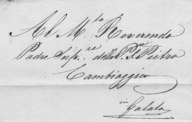 Al M.to Reverendo
Padre Sup.re della
Cambiaggio
Galata